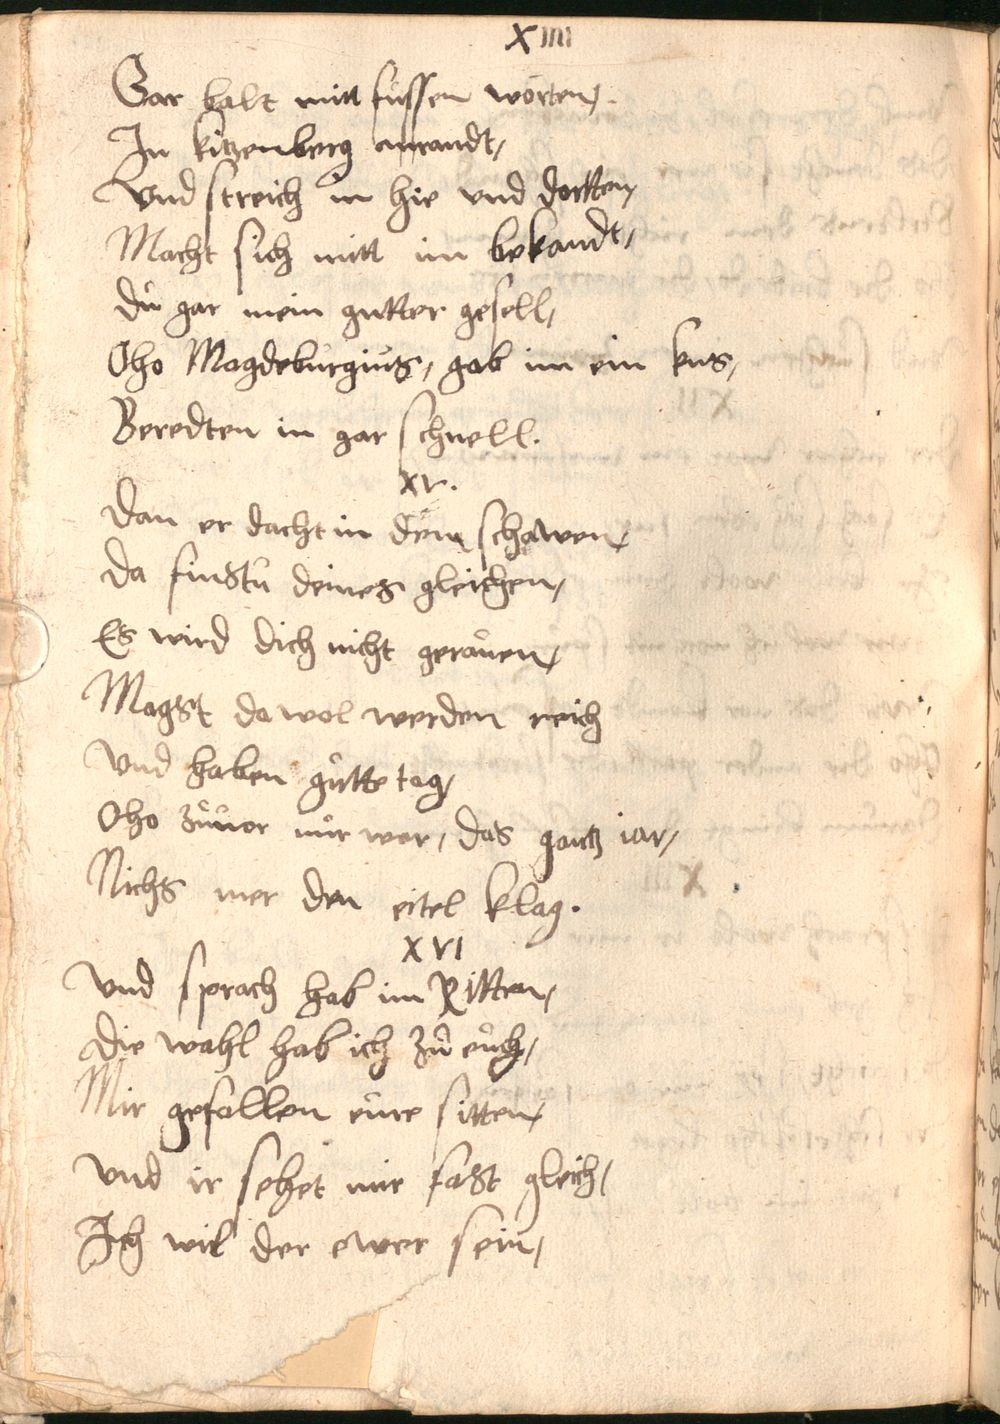 XIIII
Gar balt mitt sussen worten,
In kitzenberg anrandt,
Und streich in hie und dortten
Macht sich mitt im bekandt,
Du gar mein gutter gesell,
Oho Magdeburgius, gab im ein kus,
Beredten in gar schnell.
XV.
Dan er dacht in dem schawen,
Da finstu deines gleichen,
Es wird dich nicht gerauen,
Magst da wol werden reich
Und haben gutte tag,
Oho zuuor nur wer, das gantz iar,
Nichs mer den eitel klag.
XVI
Und sprach hab im Ritten,
Die wahl hab ich zu euch,
Mir gefallen eure sitten,
Und ir sehet mir fast gleich,
Ich wil der ewer sein,